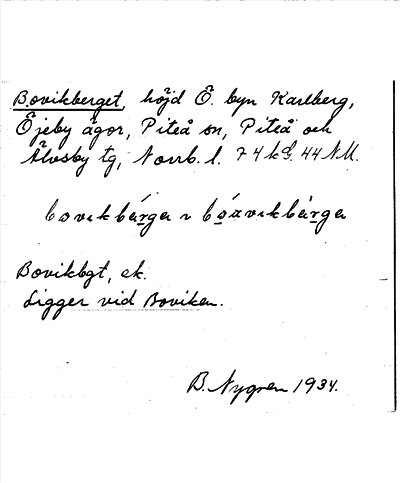 Bovikberget, höjd Ö. byn Karlberg,
Öjeby ägor, Piteå sn, Piteå och
Älvsby tg, Norrb. l. 74 k G. 44 N M.
bovikbärga
Bovikbgt, ek.
Ligger vid Boviken.
B. Nygren 1934.